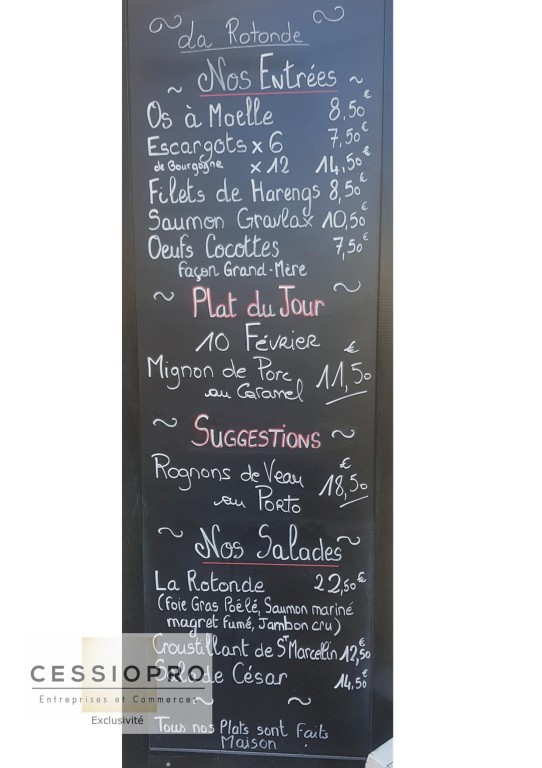 La Rotonde
~ Nos Entrées ~
Os à Moelle 8,50€
Escargots x 6 7,50€
de Bourgogne x 12 14,50€
Filets de Harengs 8,50€
Saumon Gravlax 10,50€
Oeufs Cocottes 7,50€
façon Grand-Mère
~ Plat du Jour ~
10 Février
Mignon de Porc
au Caramel 11,50€
~ SUGGESTIONS ~
Rognons de Veau
au Porto 18,50€
~ Nos Salades ~
La Rotonde 22,50€
(Foie Gras Poêlé, Saumon mariné
magret fumé, Jambon cru)
Croustillant de St Marcellin 12,50€
Salade César 14,50€
~ ~
Tous nos Plats sont Faits
Maison
CESSIOPRO
Entreprises et Commerces
Exclusivité